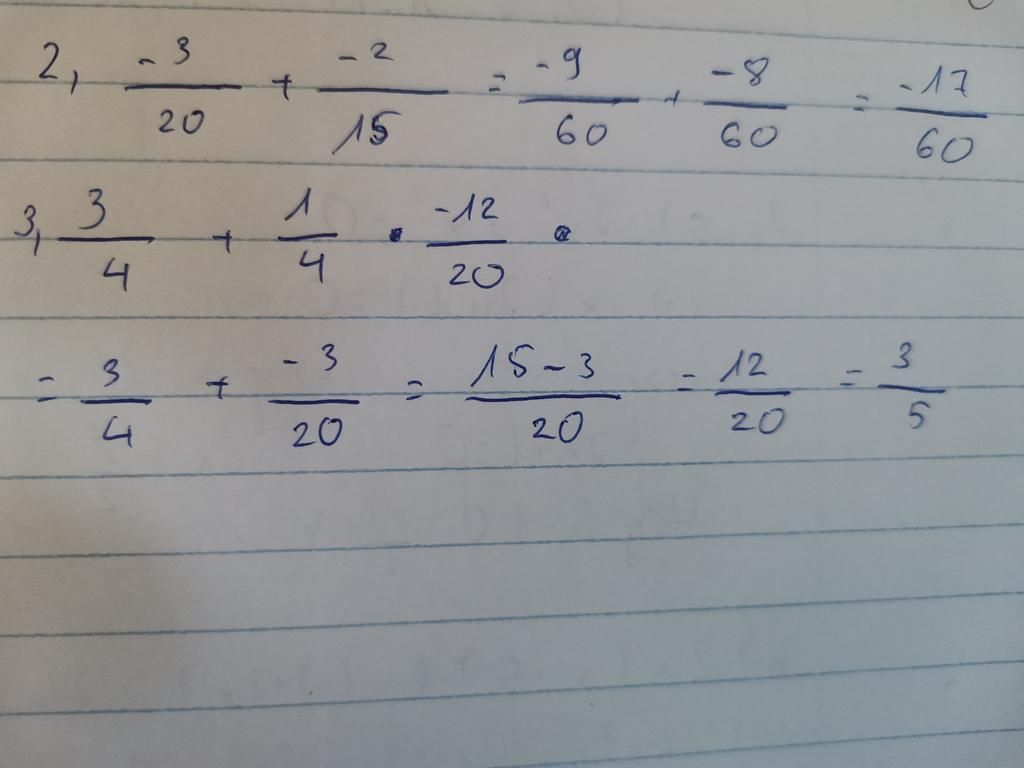 2, -3/20 + -2/15 = -9/60 + -8/60 = -17/60
3, 3/4 + 1/4 . -12/20 .
= 3/4 + -3/20 = 15-3/20 = 12/20 = 3/5